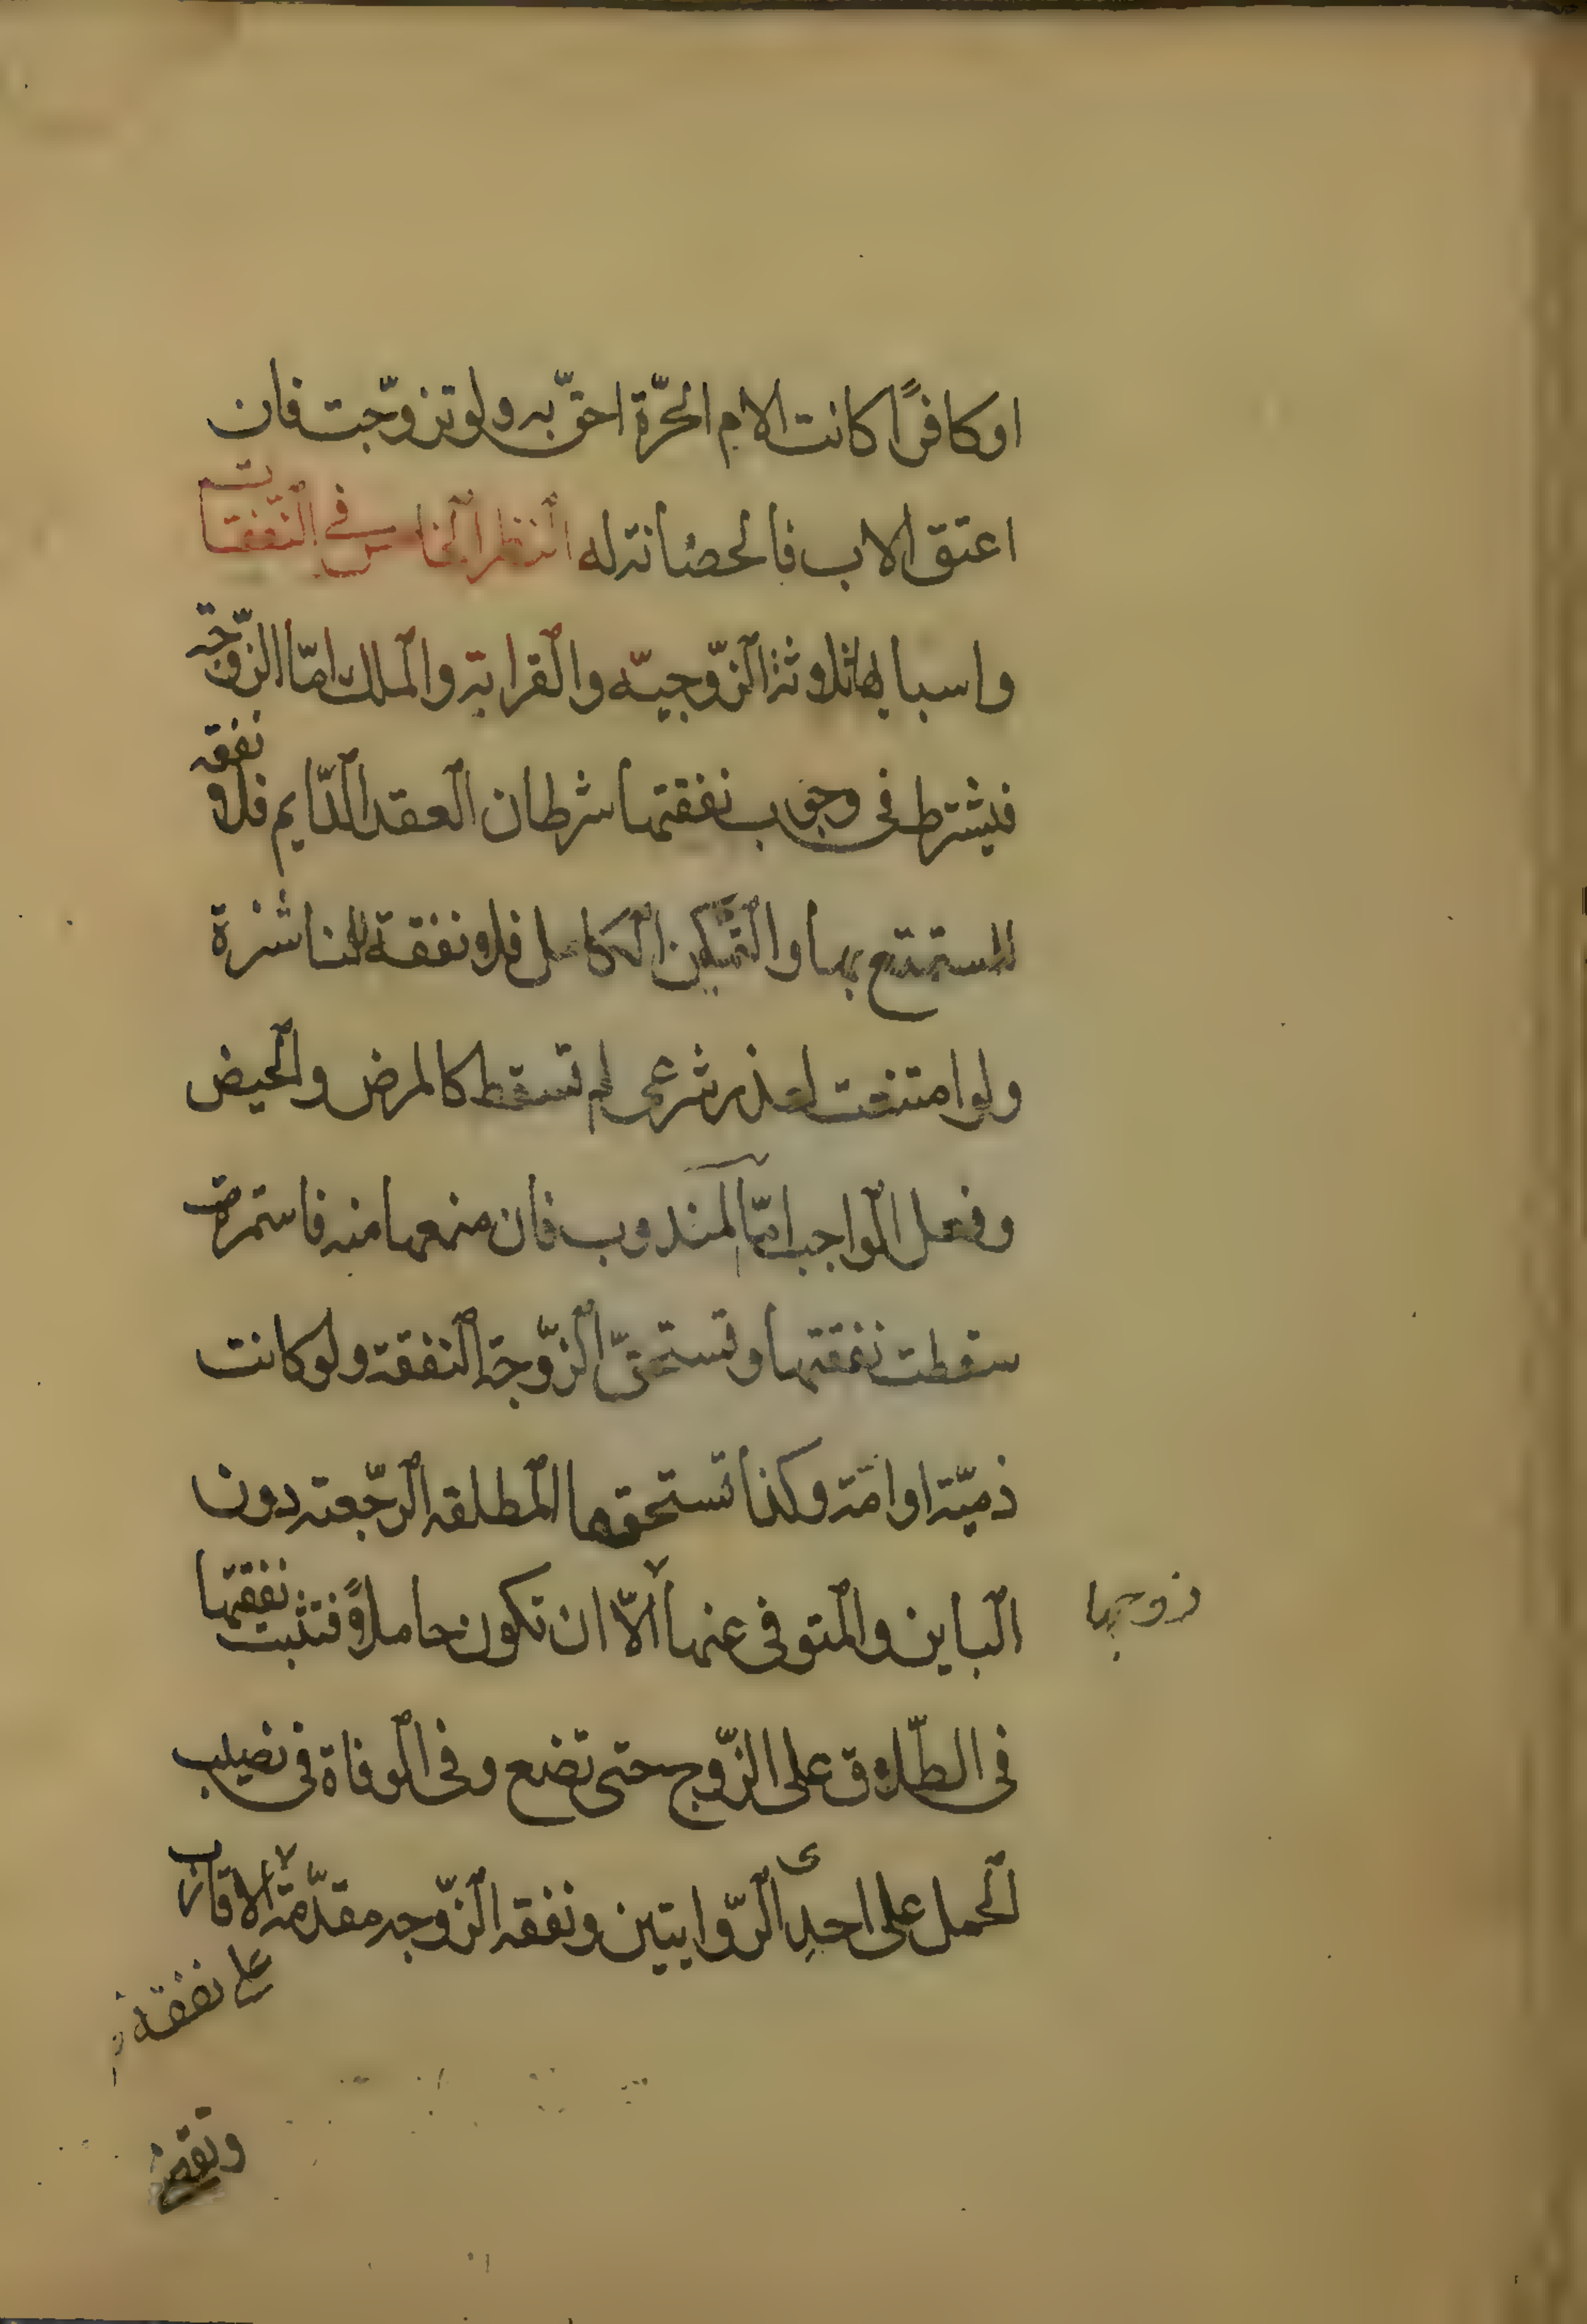 اوكافرًا كانت الام الحرّة احقّ به ولو تزوّجت فان
اعتق الاب فالحضانة له النظر الخامس في النّفقات
واسبابها ثلاوثة الزّوجيّه والقرابة والملك امّا الزّوجة
فيشترط فى وجوب نفقتها شرطان العقد الدّايم فلا نفقه
للمستمتع بها والتّمكين الكامل فلا نفقة للناشزة
ولو امتنعت لعذر شرعى لم تسقط كالمرض والحيض
وفعل الواجب امّا المندوب فان منعها منه فاستمرت
سقطت نفقتها وتستحقّ الزّوجة النفقة ولو كانت
ذميّة او امة وكذا تستحقها المطلقه الرّجعته دون
الباين والمتوفى عنها الّا ان تكون حاملاً فتثبت نفقتها
زوجها
فى الطّلاق على الزّوج حتى تضع وفى الوفاة فى نصيب
الحمل على احدى الرّوايتين ونفقه الزّوجه مقدّمة الاقارب
على نفقة